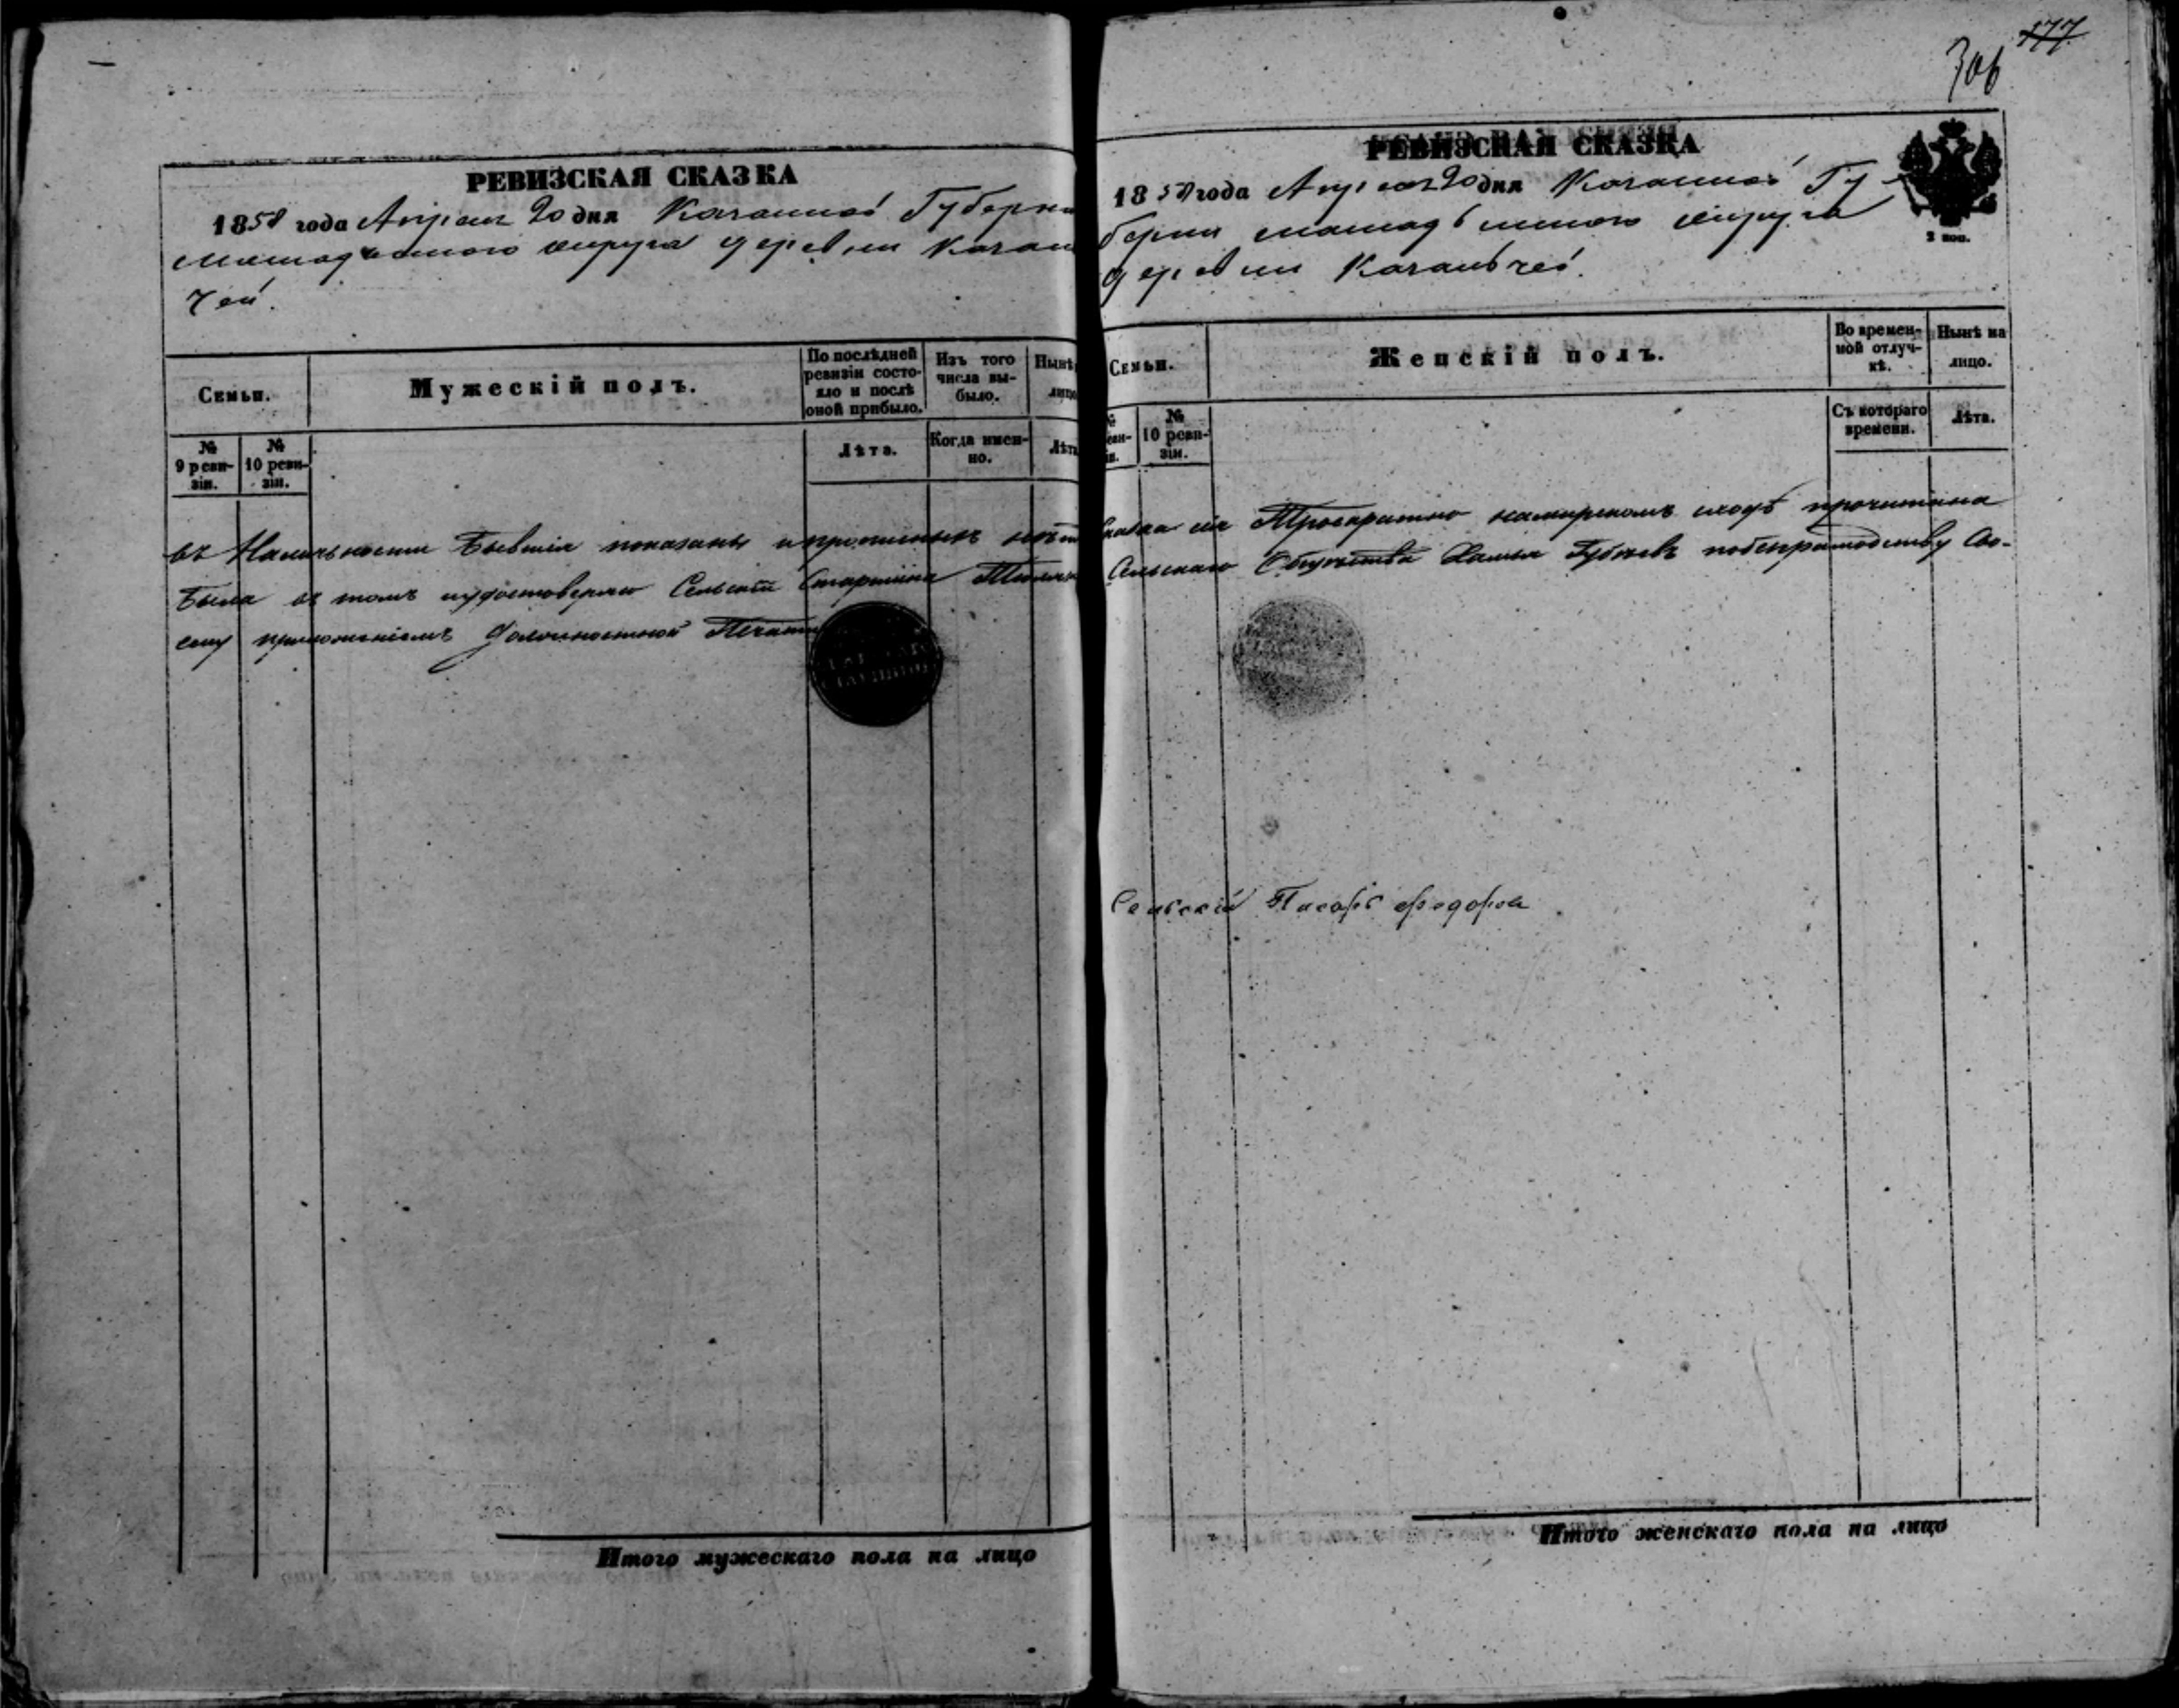 РЕВИЗСКАЯ СКАЗКА
1858 года Апреля 20 дня Казанской Губерн
Мамадышского округа деревни Казан
чей.
Семьи.
Мужескій полъ.
По послѣдней ревизіи состояло и послѣ оной прибыло.
Изъ того числа выбыло.
Нынѣ
лицо
№ 9 ревизіи.
№ 10 ревизіи.
Лѣта.
Когда имен-но.
Лѣта
въ Наличности бывшія показаны и прописныхъ нѣтъ
Была въ томъ и удостоверяю Сельскій Старшина
сему приложеніемъ Должностной Печати
Итого мужескаго пола на лицо
306
177
РЕВИЗСКАЯ СКАЗКА
1858 года Апреля 20 дня Казанской Гу-
берни Мамадышского округа
деревни Казанчей.
2 коп.
Семьи.
Женскій полъ.
Во времен-ной отлуч-кѣ.
Нынѣ на лицо.
№ 10 ревизіи.
Съ котораго времени.
Лѣта.
Сказка сія Троекратно на мирскомъ сходѣ прочитана
Сельскаго Общества по безграмотству
Сельскій Писарь Федоровъ
Итого женскаго пола на лицо